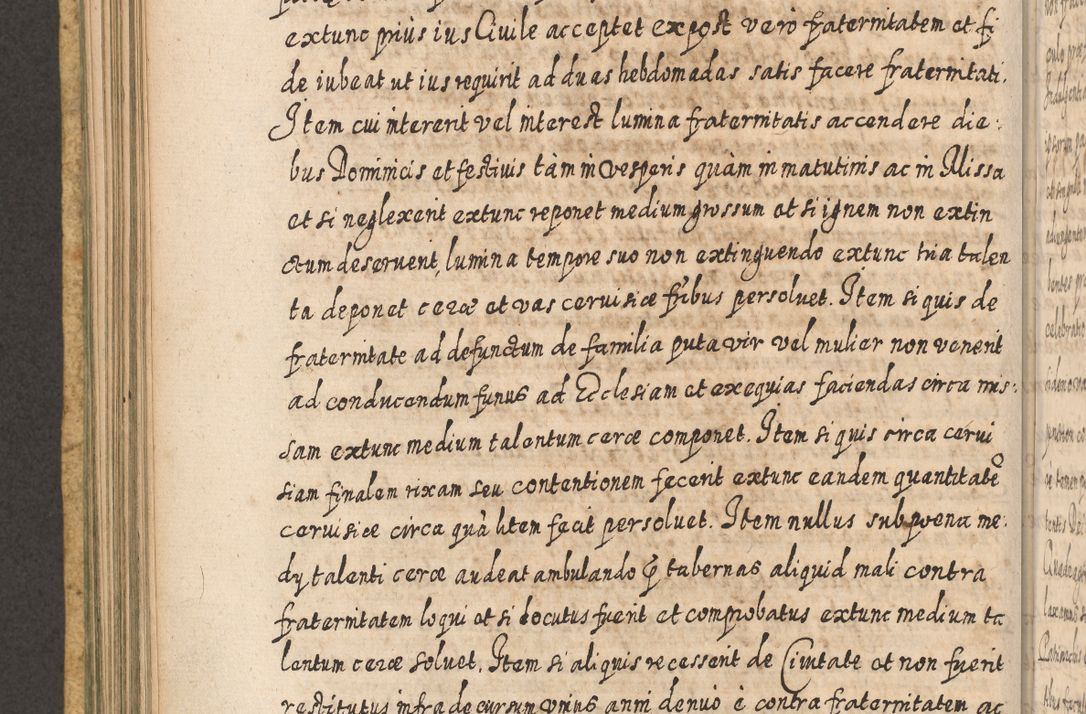 extunc priùs ius Ciuile acceptet ex post verò fraternitatem et fi
de iubeat ut ius requirit ad duas hebdomadas satis facere fraternitati.
Item cui intererit vel interest lumina fraternitatis accendere die:
bus Dominicis et festiuis tàm in vesperis quàm in matutinis ac in Missa
et si neglexerit extunc reponet medium grossum et si ignem non extin
ctum deseruerit, lumina tempore suo non extinguendo extunc tria talen
ta deponet ceræ et vas ceruisiæ fribus persoluet. Item si quis de
fraternitate ad defunctum de familia puta vir vel mulier non venerit
ad conducendum funus ad Ecclesiam et exequias faciendas circa mis:
sam extunc medium talentum ceræ componet. Item si quis circa cerui
siam finalem rixam seu contentionem fecerit extunc eandem quantitatē
ceruisiæ circa quà litem fecit persoluet. Item nullus sub poena me:
dy talenti ceræ audeat ambulando ꝑ tabernas aliquid mali contra
fraternitatem loqui et si locutus fuerit et comprobatus extunc medium ta
lentum ceræ soluet. Item si aliquis recesserit de Ciuitate et non fuerit
restitutus infra decursum vnius anni denuò è contra fraternitatem ac